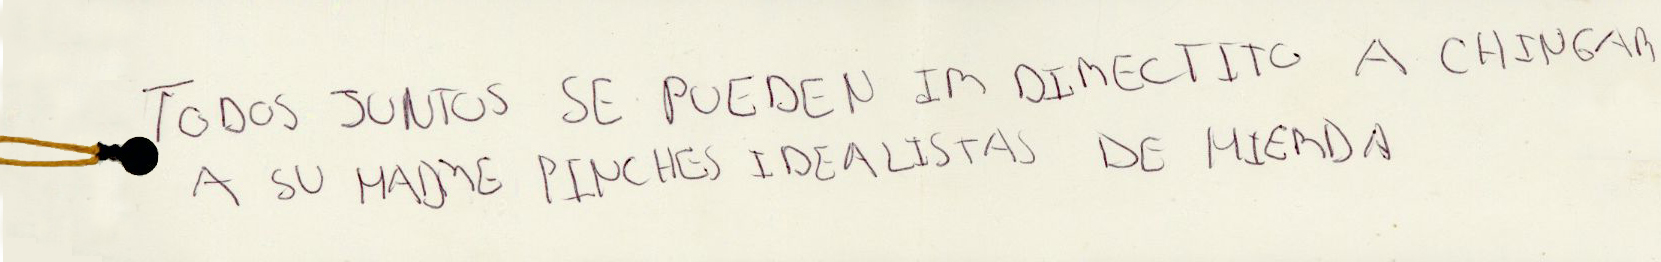 TODOS JUNTOS SE PUEDEN IR DIRECTITO A CHINGAR
A SU MADRE PINCHES IDEALISTAS DE MIERDA